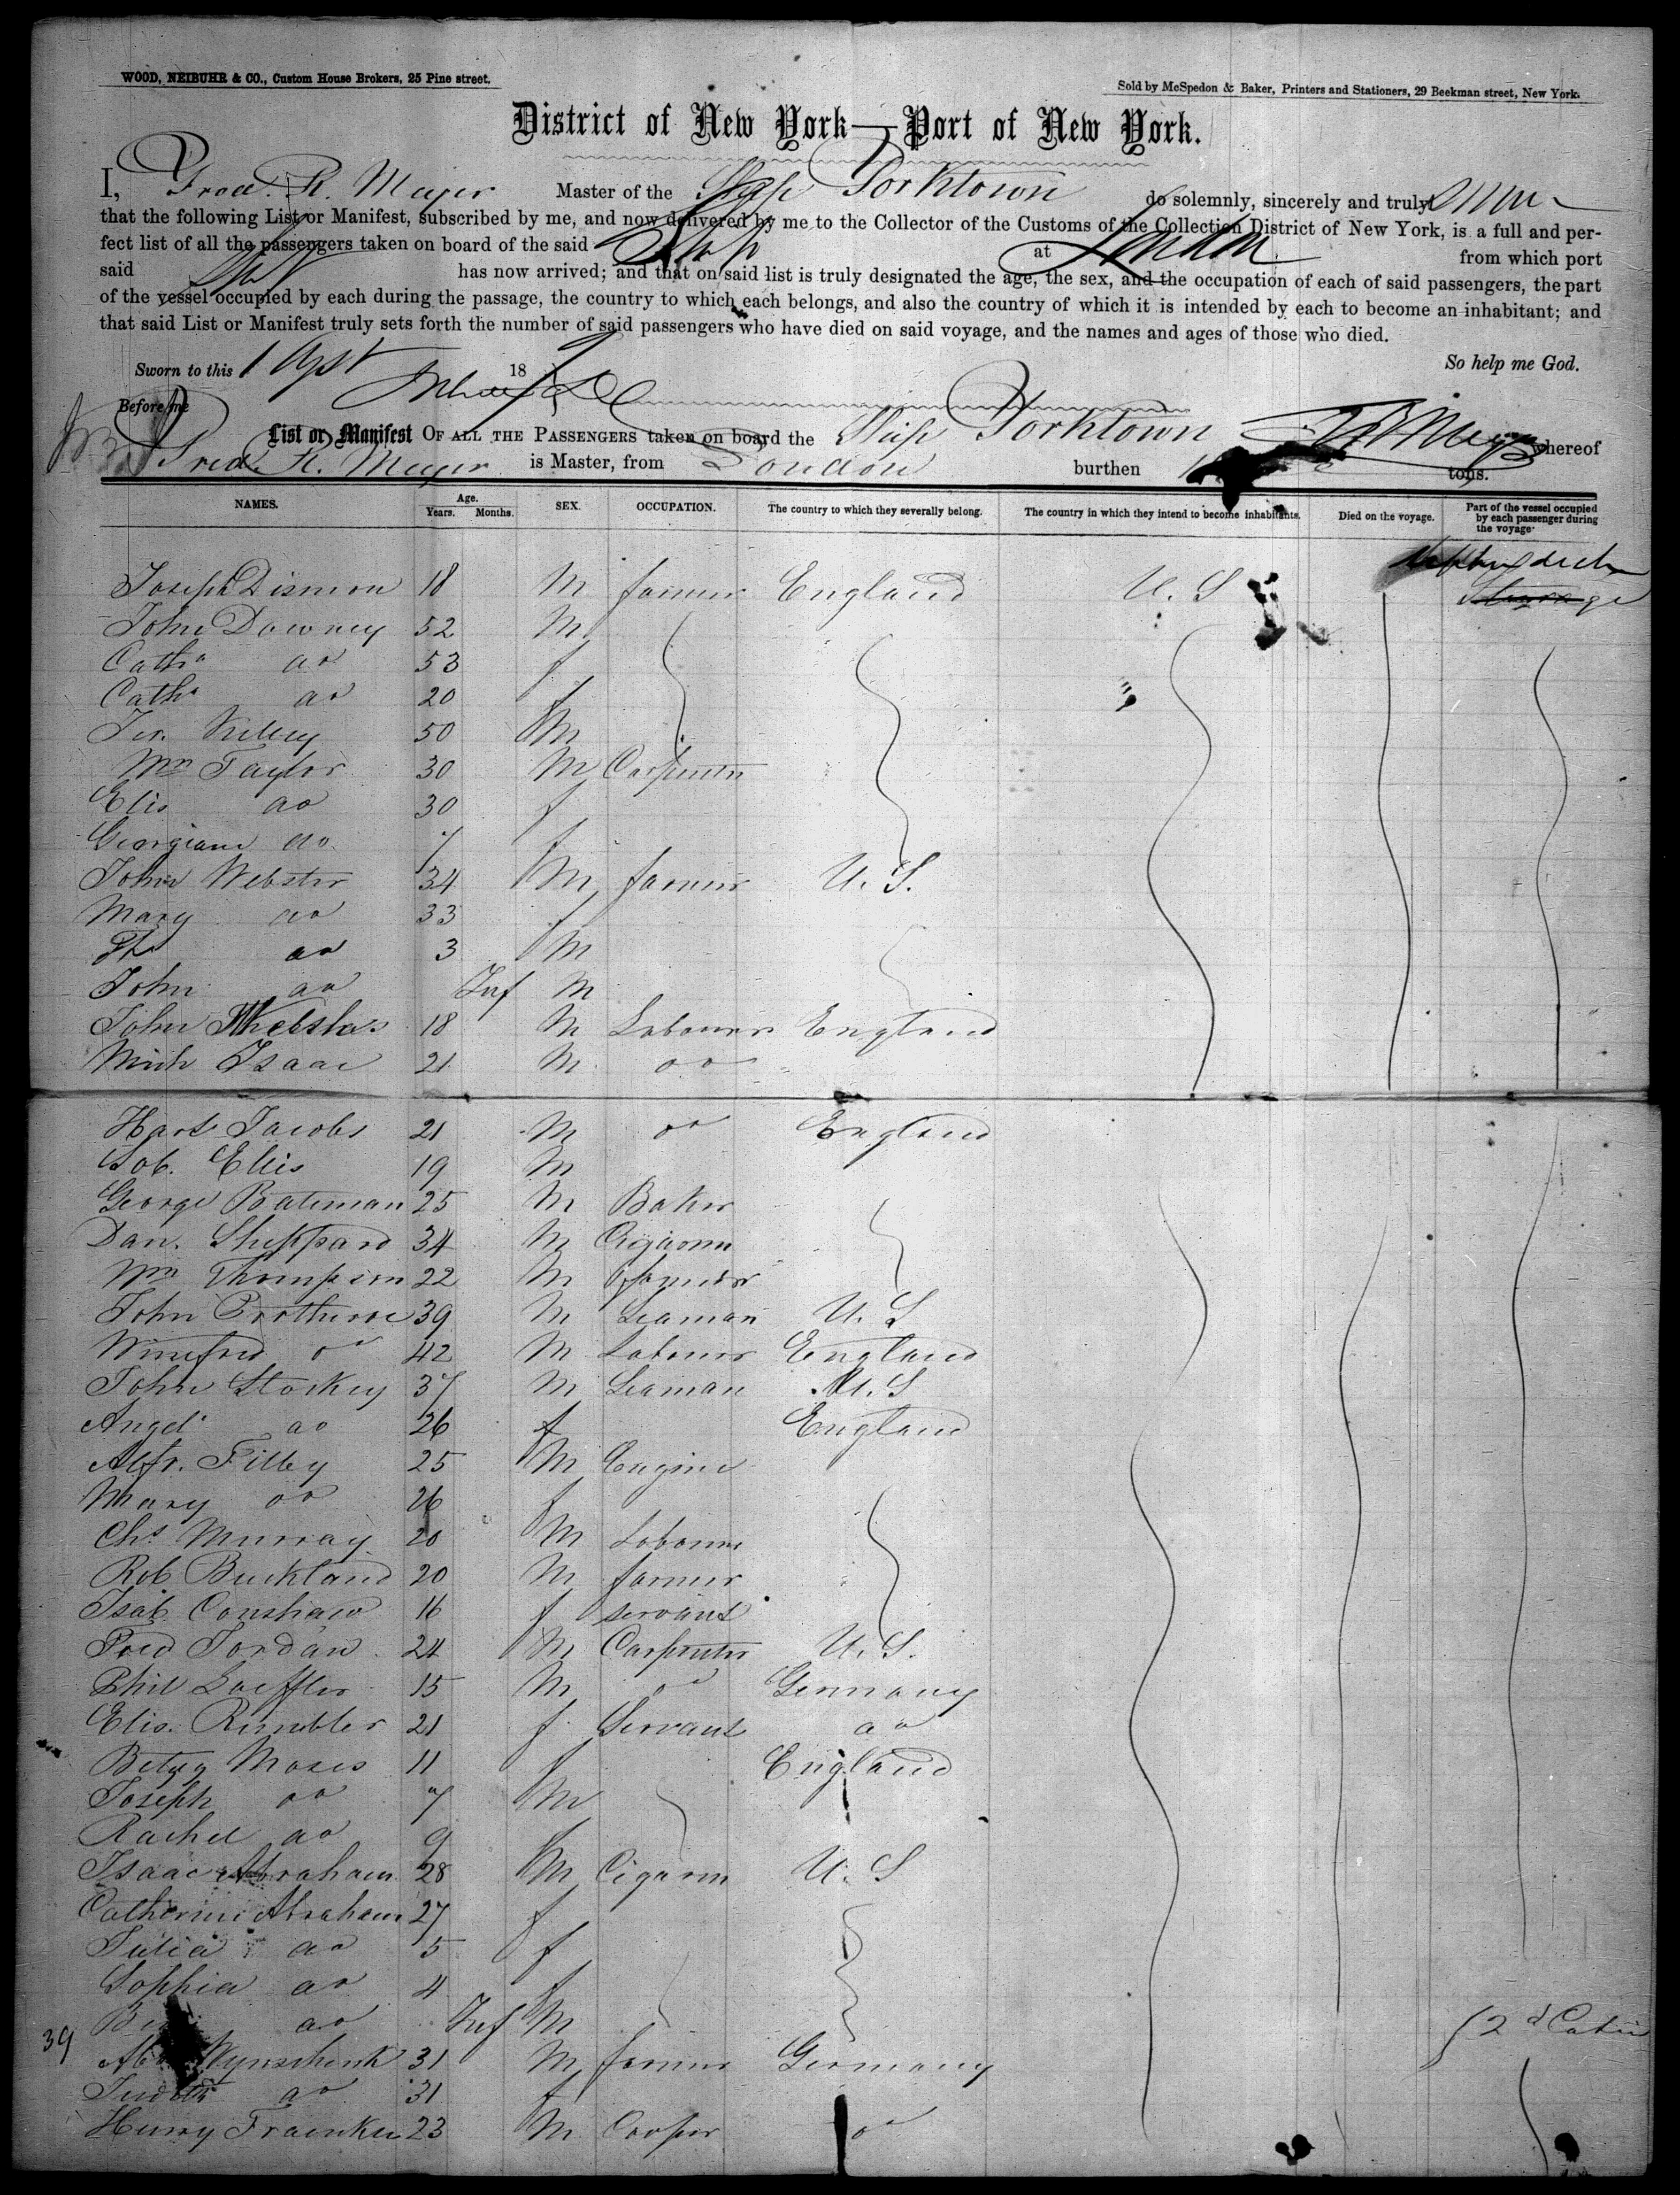 WOOD, NEIBUHR & CO., Custom House Brokers, 25 Pine street.
Sold by McSpedon & Baker, Printers and Stationers, 29 Beekman street, New York.
District of New York—Port of New York.
I, Fred. R. Meyer Master of the Ship Yorktown do solemnly, sincerely and truly swear
that the following List or Manifest, subscribed by me, and now delivered by me to the Collector of the Customs of the Collection District of New York, is a full and per-
fect list of all the passengers taken on board of the said Ship at London from which port
said Ship has now arrived; and that on said list is truly designated the age, the sex, and the occupation of each of said passengers, the part
of the vessel occupied by each during the passage, the country to which each belongs, and also the country of which it is intended by each to become an inhabitant; and
that said List or Manifest truly sets forth the number of said passengers who have died on said voyage, and the names and ages of those who died.
So help me God.
Sworn to this 1 Augst 18
Before me
List or Manifest OF ALL THE PASSENGERS taken on board the Ship Yorktown whereof
Fred. R. Meyer is Master, from London burthen tons.
NAMES. Age. Years. Months. SEX. OCCUPATION. The country to which they severally belong. The country in which they intend to become inhabitants. Died on the voyage. Part of the vessel occupied by each passenger during the voyage.
Joseph Dismon 18 M farmer England U. S
John Downey 52 M
Catha do 53 f
Catha do 20 f
Jer. 50 M
Wm Taylor 30 M Carpenter
Elis do 30 f
Georgiana do 7 f
John Webster 34 M farmer U. S.
Mary do 33 f
Th do 3 M
John do Inf M
John 18 M Labourer England
Mich Isaac 21 M do
Hart Jacobs 21 M do England
Sob. Ellis 19 M
George Bateman 25 M Baker
Dan. Sheppard 34 M
Wm Thompson 22 M farmer
John 39 M Seaman U. S
Winefred do 42 M Labourer England
John Storkey 37 M Seaman U. S
Angel do 26 f England
Alfr. Filby 25 M Engine
Mary do 26 f
Chs Murray 20 M Labourer
Rob Buckland 20 M farmer
Isab Conshaw 16 f servant
Fred Jordan 24 M Carpenter U. S.
Phil Loeffler 15 M do Germany
Elis. Rimbler 21 f Servant do
Betsy Moses 11 f England
Joseph do 7 M
Rachel do 9 f
Isaac Abraham 28 M Cigarm U. S
Catherine Abraham 27 f
Julia do 5 f
Sophia do 4 f
do Inf M
39
2d Cabin
Wynschenk 31 M farmer Germany
Judith do 31 f
Henry Fraenkel 23 M Cooper do